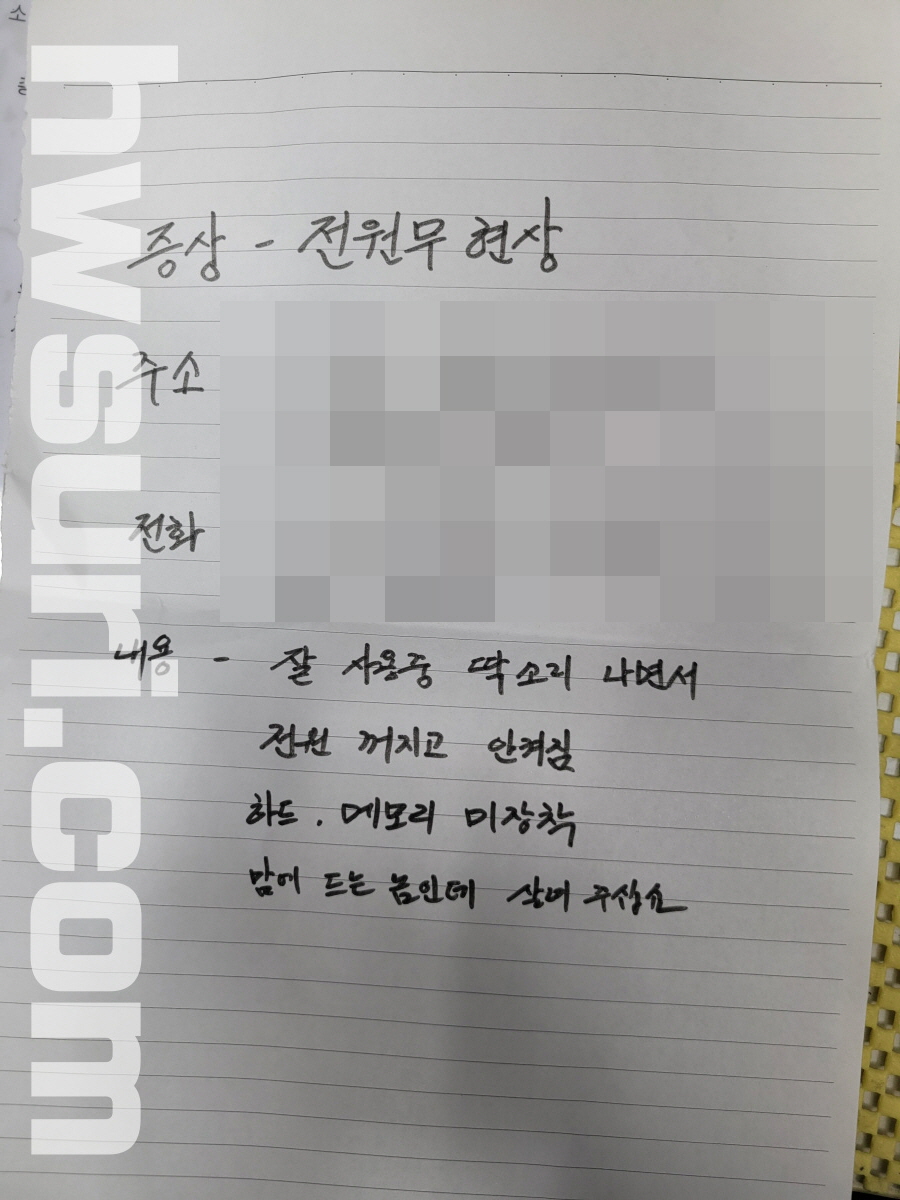 증상 - 전원무 현상
주소
전화
내용 - 잘 사용중 딱소리 나면서
전원 꺼지고 안켜짐
하드. 메모리 미장착
맘에 드는 놈인데 살려 주십쇼
hwsuri.com